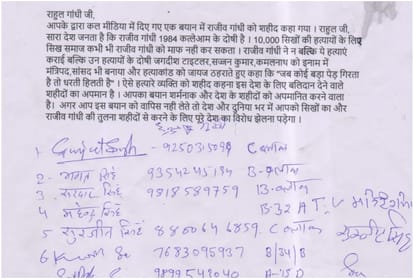 राहुल गांधी जी,
आपके द्वारा कल मीडिया में दिए गए एक बयान में राजीव गांधी को शहीद कहा गया। राहुल जी,
सारा देश जानता है कि राजीव गांधी 1984 कत्लेआम के दोषी है। 10,000 सिखों की हत्यायों के लिए
सिख समाज कभी भी राजीव गांधी को माफ नही कर सकता। राजीव गांधी ने न बल्कि ये हत्याएं
कराई बल्कि उन हत्यायों के दोषी जगदीश टाइटलर,सज्जन कुमार,कमलनाथ को इनाम में
मंत्रिपद,सांसद भी बनाया और हत्याकांड को जायज ठहराते हुए कहा कि "जब कोई बड़ा पेड़ गिरता
है तो धरती हिलती है"। ऐसे हत्यारे व्यक्ति को शहीद कहना इस देश के लिए बलिदान देने वाले
शहीदों का अपमान है। आपका बयान शर्मनाक और देश के शहीदों को अपमानित करने वाला
है। अगर आप इस बयान को वापिस नही लेते तो देश और दुनिया भर में आपको सिखों का और
राजीव गांधी की तुलना शहीदों से करने के लिए पूरे देश का विरोध झेलना पड़ेगा।
1 - 9250315098 C ब्लॉक
2 - भगत सिंह 9354245194 B-ब्लॉक
3 - सरदार सिंह 9818589759 B-ब्लॉक
4 महेन्द्र सिंह B-32 A
5 सुरजीत सिंह 8800646859 C ब्लॉक
6 7683095937 B/34/B
9899543040